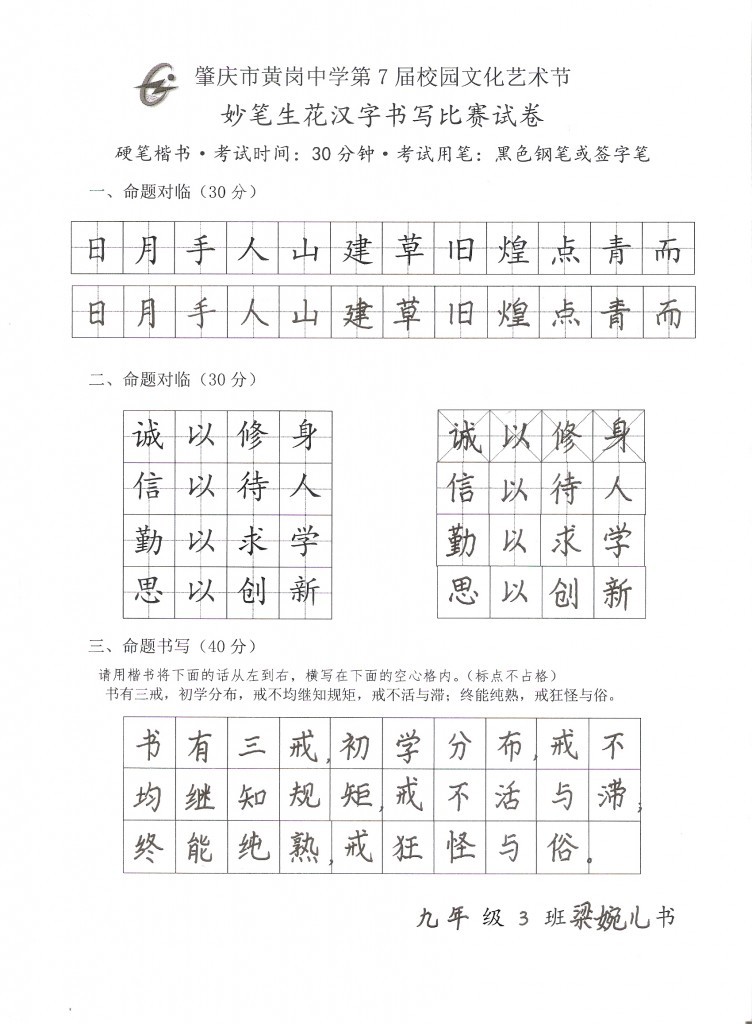 肇庆市黄岗中学第7届校园文化艺术节
妙笔生花汉字书写比赛试卷
硬笔楷书·考试时间：30分钟·考试用笔：黑色钢笔或签字笔
一、命题对临（30分）
日月手人山建草旧煌点青而
日月手人山建草旧煌点青而
二、命题对临（30分）
诚以修身
信以待人
勤以求学
思以创新
诚以修身
信以待人
勤以求学
思以创新
三、命题书写（40分）
请用楷书将下面的话从左到右，横写在下面的空心格内。（标点不占格）
书有三戒，初学分布，戒不均继知规矩，戒不活与滞；终能纯熟，戒狂怪与俗。
书有三戒，初学分布，戒不
均继知规矩，戒不活与滞；
终能纯熟，戒狂怪与俗。
九年级3班梁婉儿书